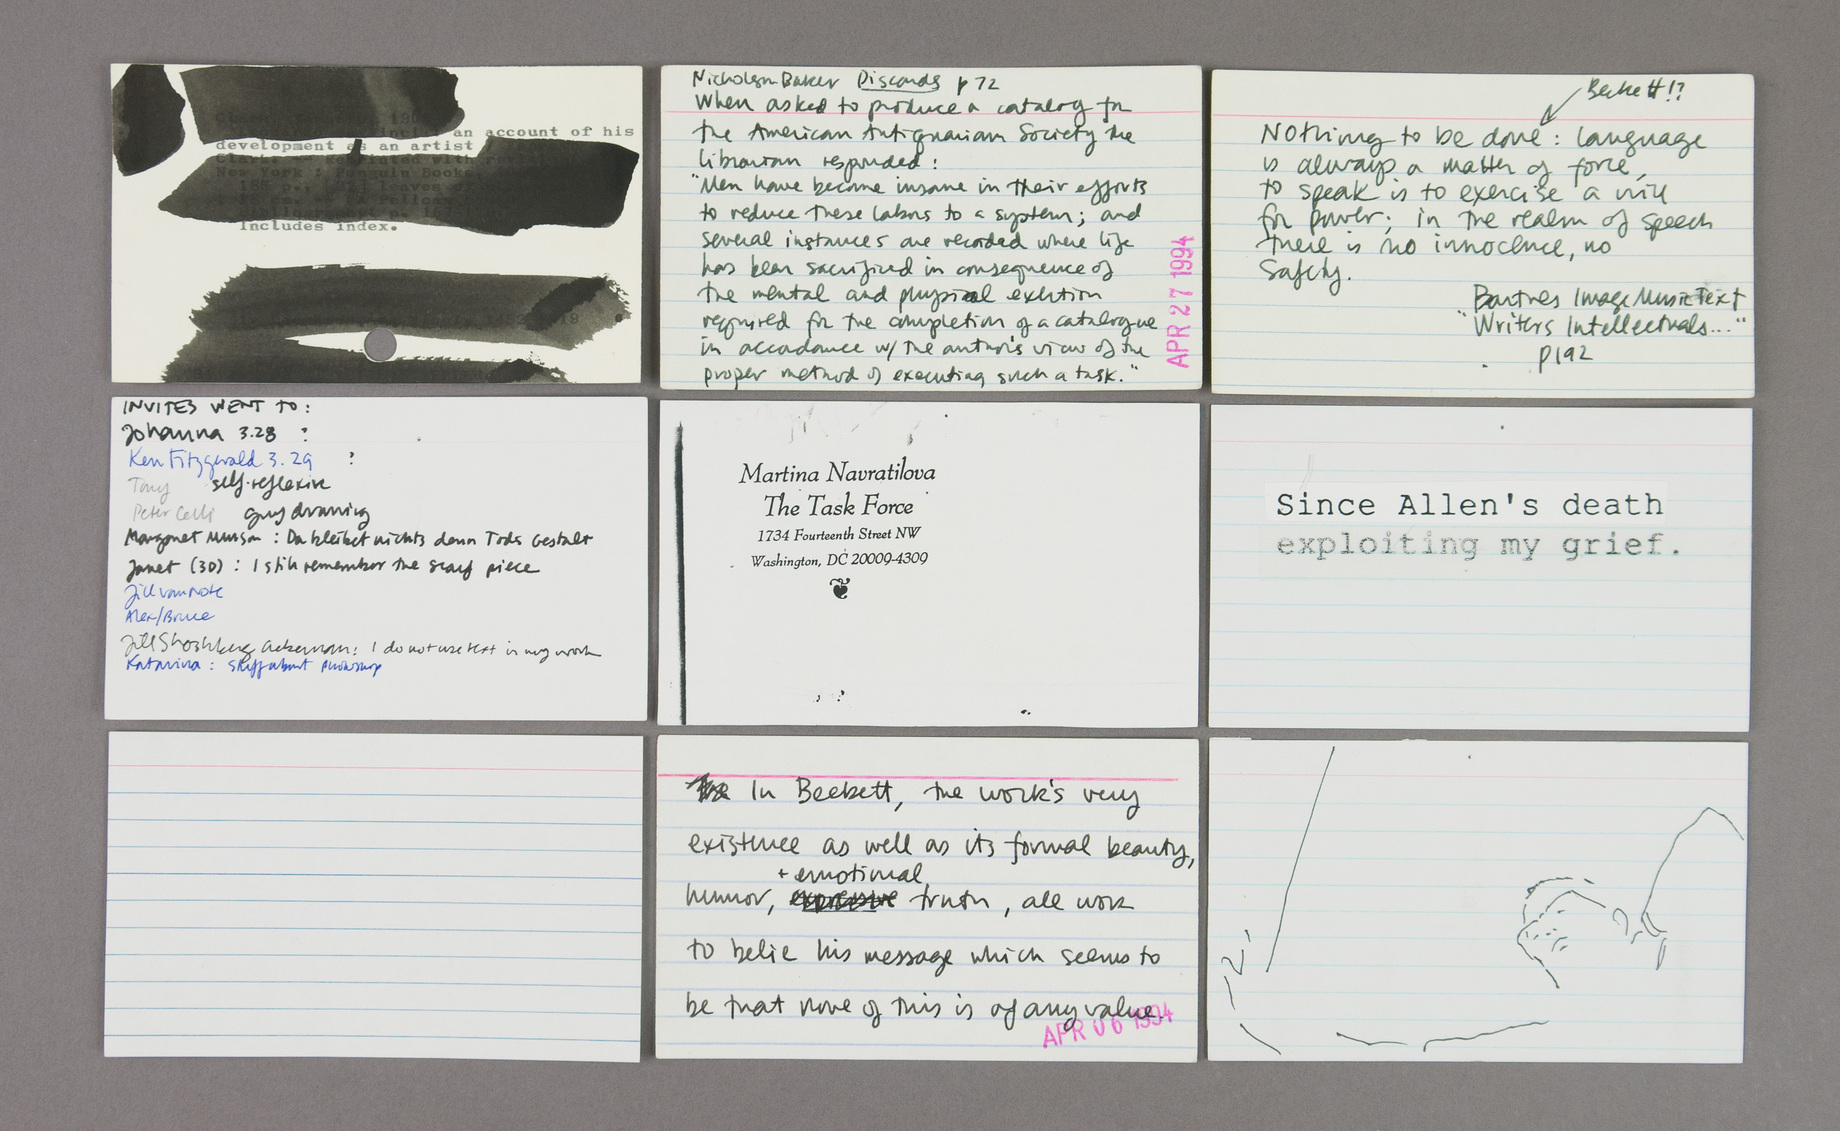 an account of his
development as an artist
New York : Penguin Books,
Includes index.
Nicholson Baker Discards p 72
When asked to produce a catalog for
the American Antiquarian Society the
librarian responded:
"Men have become insane in their efforts
to reduce these labors to a system; and
several instances are recorded where life
has been sacrificed in consequence of
the mental and physical exertion
required for the completion of a catalogue
in accordance w/ the author's view of the
proper method of executing such a task."
APR 27 1994
Beckett!?
Nothing to be done: language
is always a matter of force,
to speak is to exercise a will
for power; in the realm of speech
there is no innocence, no
safety.
Barthes Image Music Text
"Writers Intellectuals..."
p192
INVITES WENT TO:
Johanna 3.28 ?
Ken Fitzgerald 3.29 ?
Tony self-reflexive
Peter Celli guy drawing
Margaret Munson: Da bleibet nichts denn Tods Gestalt
Janet (3D): I still remember the scarf piece
Jill vanNote
Alex/Bruce
Jill Ackerman: I do not use text in my work
Katarina: stuff about
Martina Navratilova
The Task Force
1734 Fourteenth Street NW
Washington, DC 20009-4309
Since Allen's death
exploiting my grief.
In Beckett, the work's very
existence as well as its formal beauty,
+ emotional
humor, truth, all work
to belie his message which seems to
be that none of this is of any value.
APR 06 1994